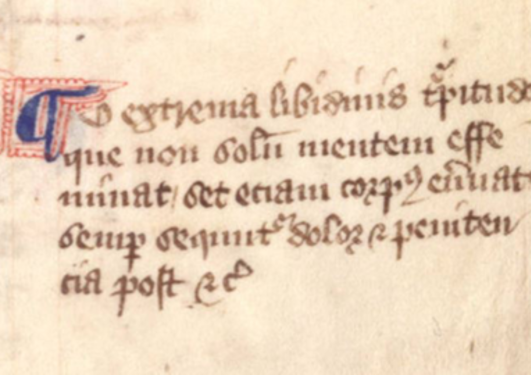 ¶ O extrema libidinis tᷓpitudo
que non solū mentem effe
minat / set eciam corpꝰ en̄uat
semꝑ sequit᷑ dolor ⁊ peniten
cia post ⁊ c̄